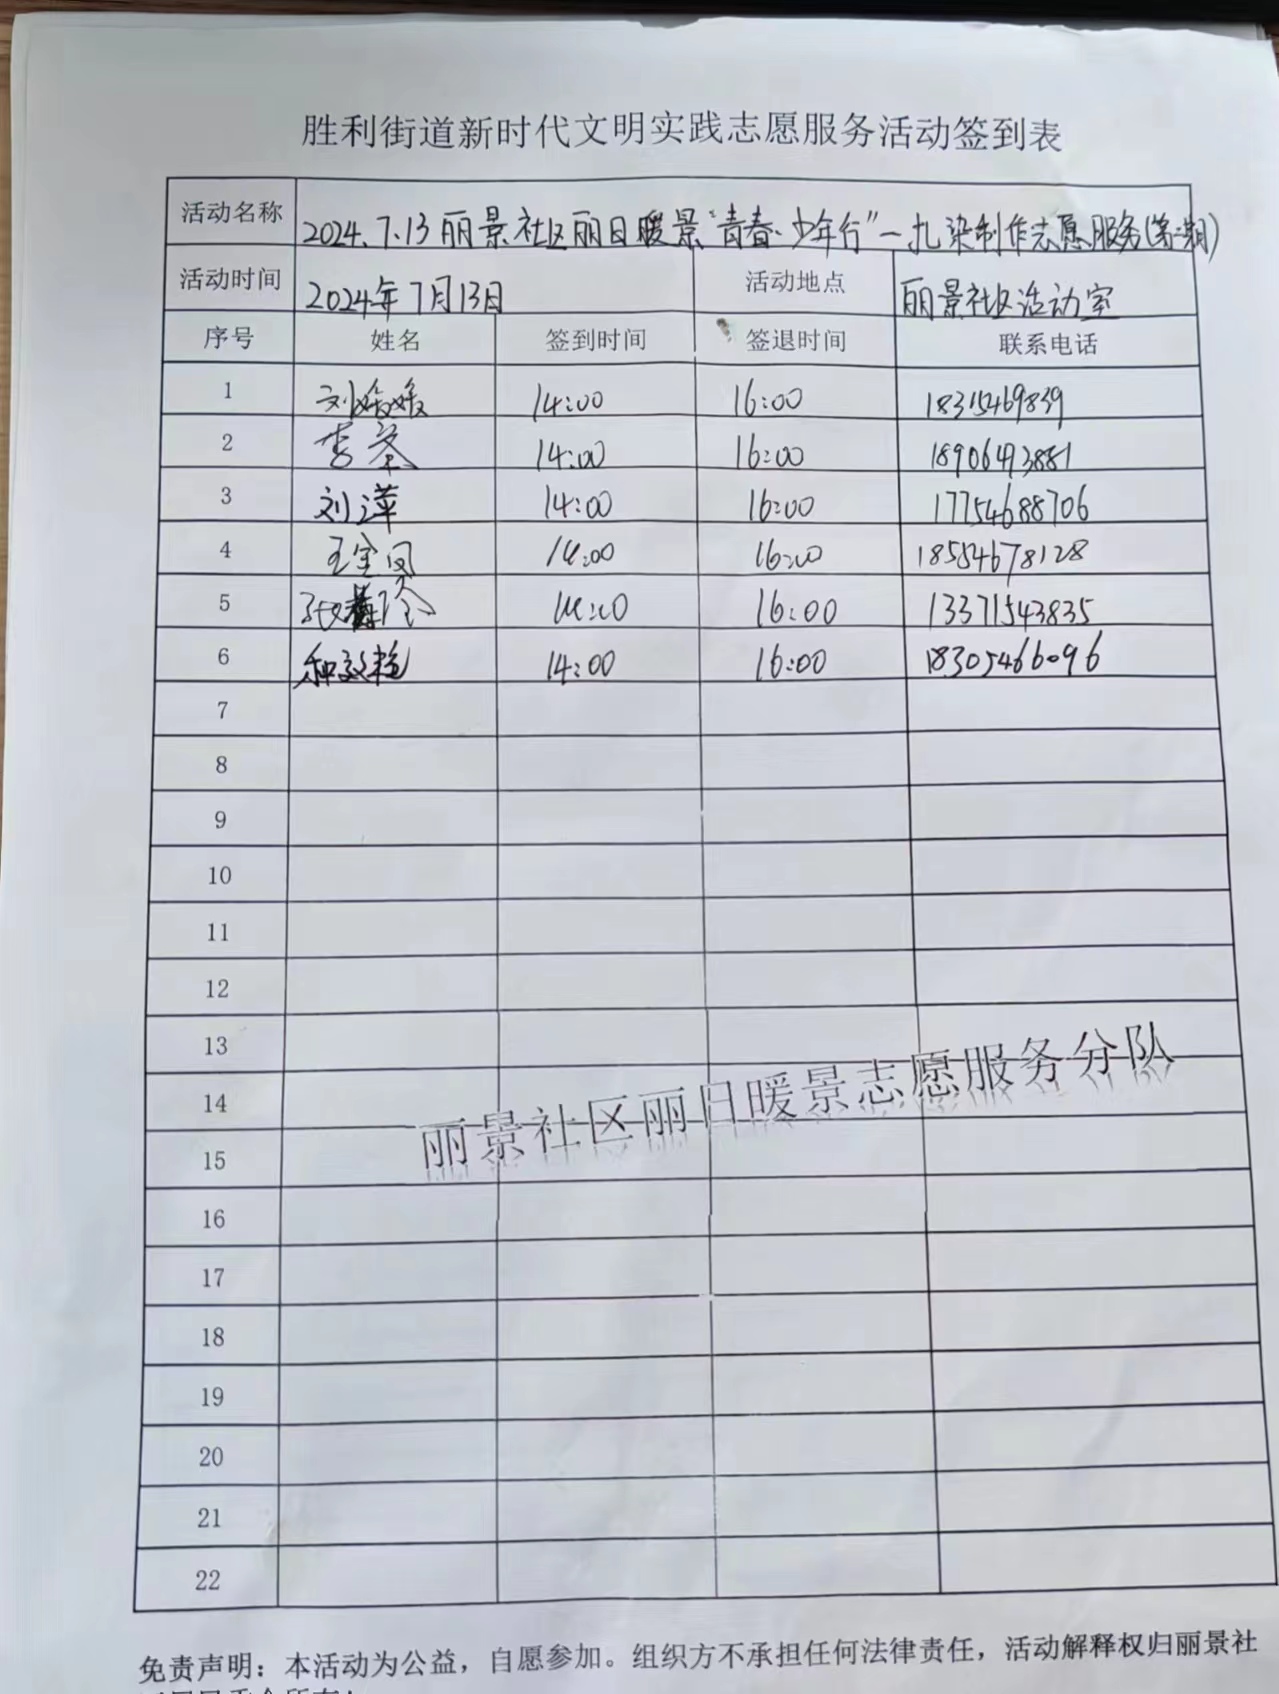 胜利街道新时代文明实践志愿服务活动签到表
活动名称 2024.7.13丽景社区丽日暖景“青春·少年行”—扎染制作志愿服务(第二期)
活动时间 2024年7月13日 活动地点 丽景社区活动室
序号 姓名 签到时间 签退时间 联系电话
1 刘媛媛 14:00 16:00 18315469839
2 李 14:00 16:00 18906493881
3 刘萍 14:00 16:00 17754688706
4 王宝凤 14:00 16:00 18554678128
5 张 14:00 16:00 13371543835
6 种效艳 14:00 16:00 18305466096
7
8
9
10
11
12
13
14
丽景社区丽日暖景志愿服务分队
15
16
17
18
19
20
21
22
免责声明：本活动为公益，自愿参加。组织方不承担任何法律责任，活动解释权归丽景社